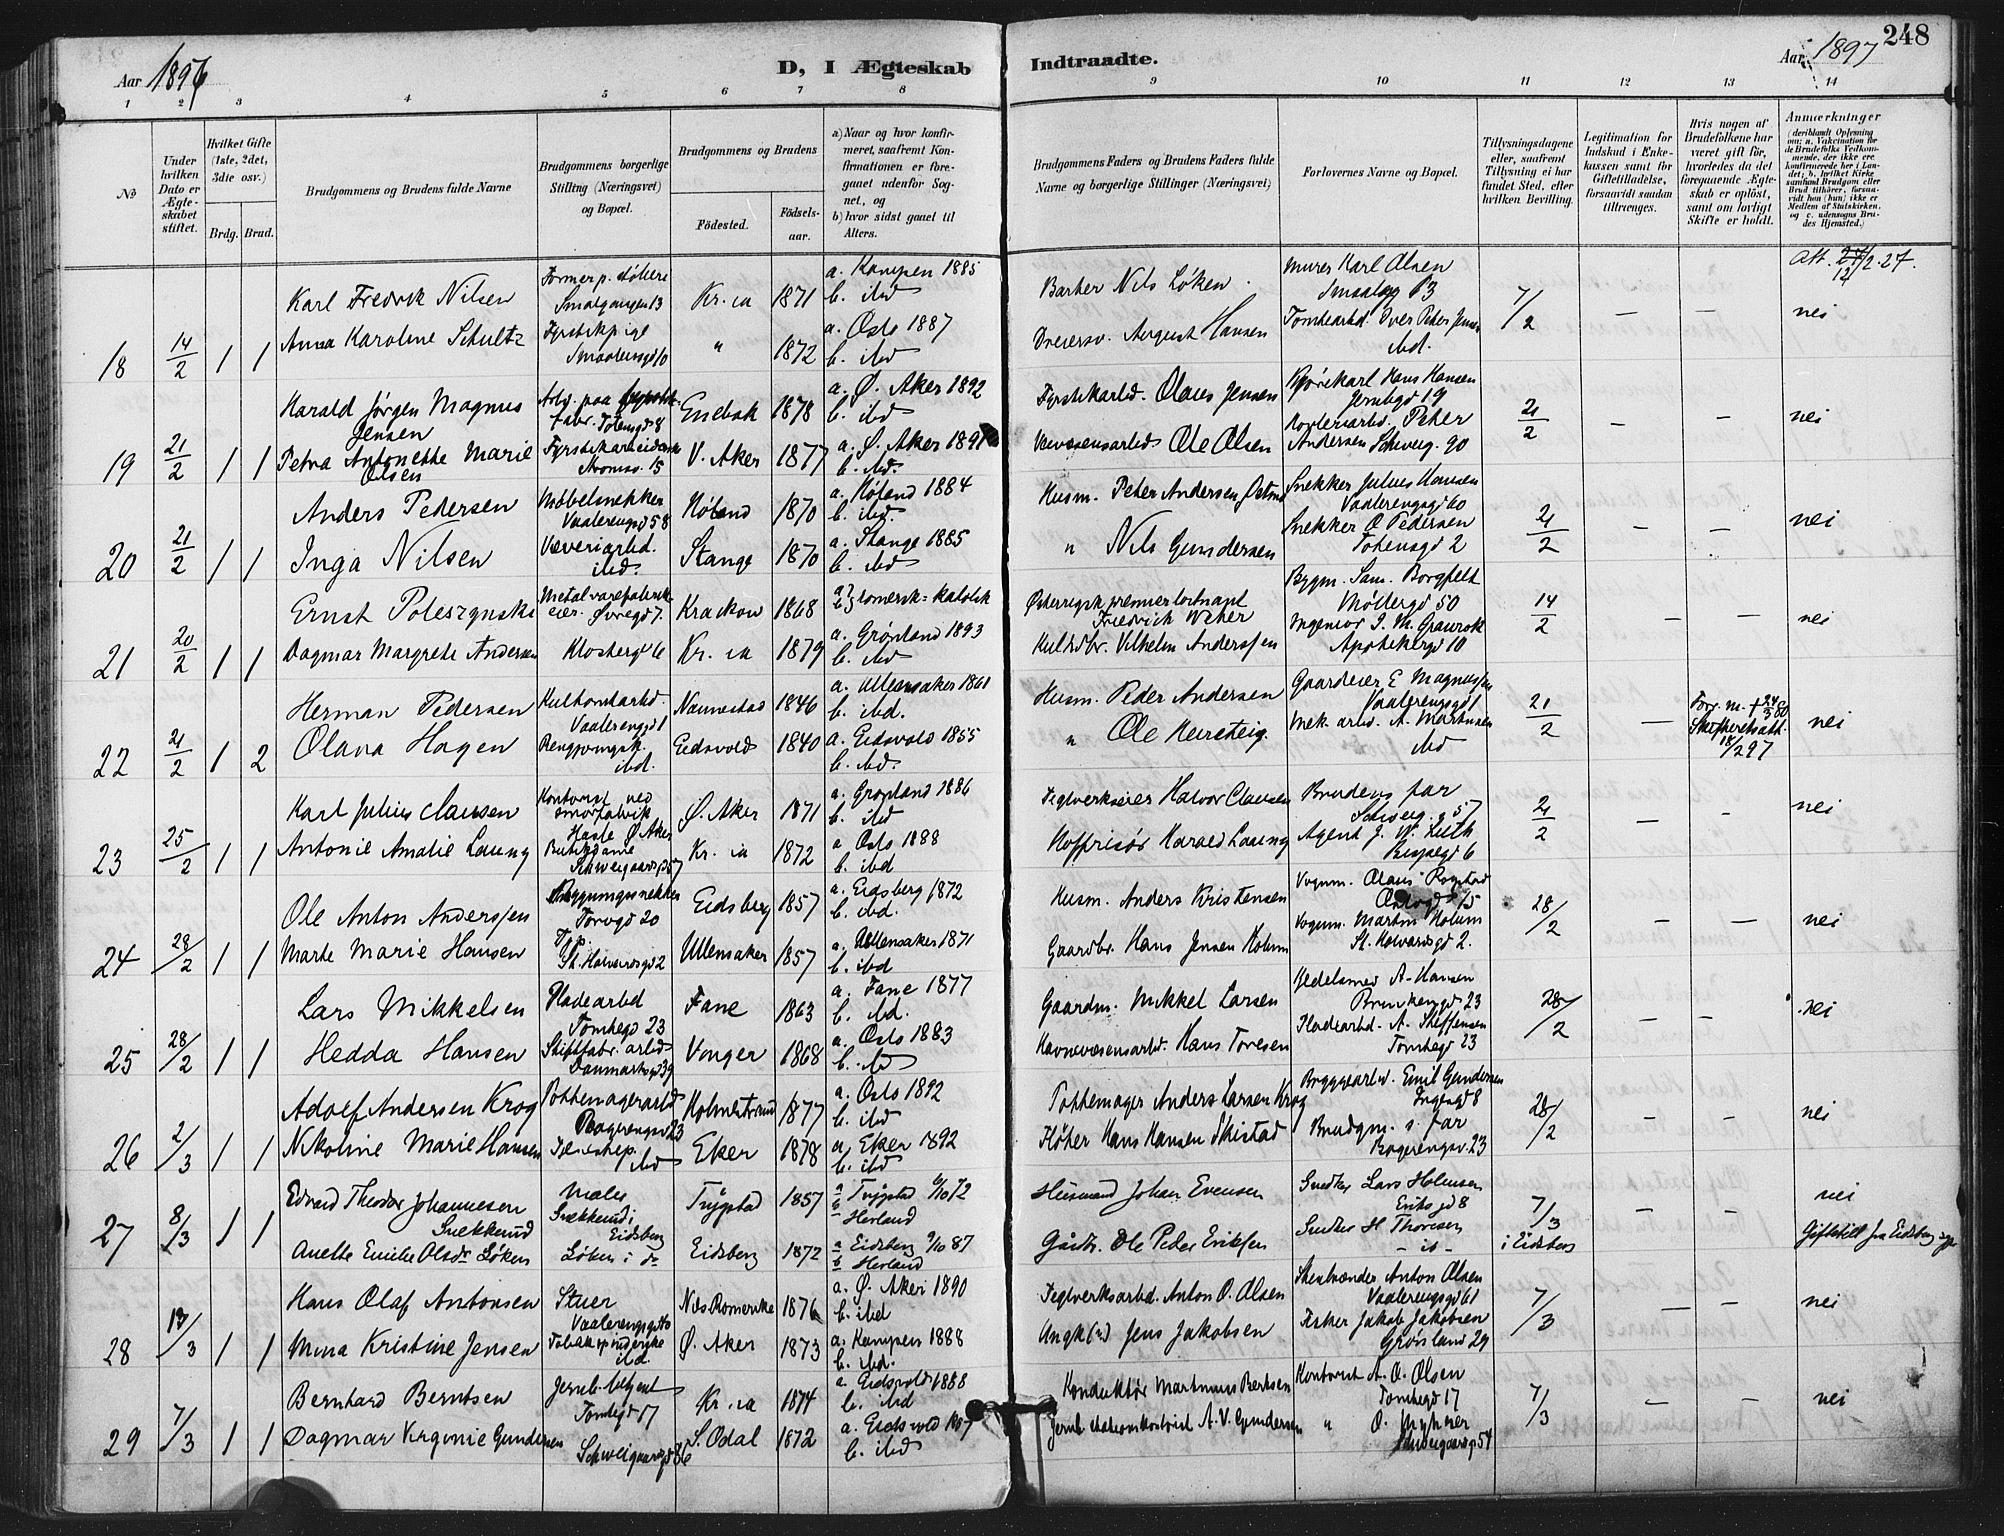 248
Aar 1897
D, I Ægteskab Indtraadte.
Aar 1897
1 2 3 4 5 6 7 8 9 10 11 12 13 14
No
Under hvilken Dato er Ægteskabet stiftet.
Hvilket Gifte (1ste, 2det, 3die osv.)
Brdg. Brud.
Brudgommens og Brudens fulde Navne
Brudgommens borgerlige Stilling (Næringsvei) og Bopæl.
Brudgommens og Brudens
Födested.
Födselsaar.
a) Naar og hvor konfirmeret, saafremt Konfirmationen er foregaaet udenfor Sognet, og
b) hvor sidst gaaet til Alters.
Brudgommens Faders og Brudens Faders fulde Navne og borgerlige Stillinger (Næringsvei)
Forlovernes Navne og Bopæl.
Tillysningsdagene eller, saafremt Tillysning ei har fundet Sted, efter hvilken Bevilling.
Legitimation for Indskud i Enkekassen samt for Giftetilladelse, forsaavidt saadan tiltrænges.
Hvis nogen af Brudefolkene har været gift för, hvorledes da det foregaaende Ægteskab er oplöst, samt om lovligt Skifte er holdt.
Anmærkninger
(deriblandt Oplysning om: a. Vakcination for de Brudefolks Vedkommende, der ikke ere konfirmerede her i Landet; b. hvilket Kirkesamfund Brudgom eller Brud tilhörer, forsaavidt han (hun) ikke er Medlem af Statskirken, og c. udensogns Brudes Hjemsted.)
18 14/2 1 1
Karl Fredrik Nilsen Smalgangen 13 Kr.ia 1871 a. Kampen 1885 b. ibd Barber Nils Løken Murer Karl Olsen 7/2 — — nei
Anna Karoline Schultz Fyrstikpige Smaalensgd 10 " 1872 a. Oslo 1887 b. ibd Dreiersv. August Hansen Tomtearbd. Iver Peter Jensen ibd.
19 21/2 1 1
Harald Jørgen Magnus Jensen Totensgd 8 Enebak 1878 a. Ø. Aker 1892 b. ibd Fyrstikarbd. Olaus Jensen Kjørekarl Hans Hansen Jernbgd 19 21/2 — — nei
Petra Antonette Marie Olsen Fyrstikarbeiderske Strømsv. 15 V. Aker 1877 a. Ø. Aker 1891 b. ibd. Veivæsensarbd Ole Olsen Peter Andersen Schweig. 90
20 21/2 1 1
Anders Pedersen Møbelsnekker Vaalerengsgd 58 Høland 1870 a. Høland 1884 b. ibd. Husm. Peter Andersen Snekker Julius Hansen Vaalerengsgd 60 21/2 — — nei
Inga Nilsen Væveriarbd. ibd. Stange 1870 a. Stange 1885 b. ibd " Nils Gundersen Snekker O Pedersen Totensgd 2
21 20/2 1 1
Ernst Poleszynski Metalvarefabrikeier. Øvregd 7. Krackow 1868 a} b} romersk=katolsk Østerrigsk premierløitnant Fredrick Weher Bygm. Sam. Borgfeldt Møllergd 50 14/2 — — nei
Dagmar Margrete Andersen Klosterg 6 Kr.ia 1879 a. Grønland 1893 b. ibd Kulhdbr. Vilhelm Anderssen Ingeniør J. M. Apotekergd 10
22 21/2 1 2
Herman Pedersen Kulkomtarbd. Vaalerengd 1 Nannestad 1846 a. Ullensaker 1861 b. ibd. Husm. Peder Andersen Gaardeier E Magnussen Vaalerengsgd 1 21/2 — Forr. m. † 24/3 80 Skifteretsatt. 18/2 97 nei
Olava Hagen Rengjøringsk. ibd. Eidsvold 1840 a. Eidsvold 1855 b. ibd. " Ole Mek. arbd. A. Martinsen ibd
23 25/2 1 1
Karl Julius Clausen Kontorist ved smørfabrik Hasle Ø. Aker Ø. Aker 1871 a. Grønland 1886 b. ibd Teglverkseier Halvor Clausen Brudens far Schweig. g 57 21/2 — — nei
Antonie Amalie Laung Butikdame Schweigaardsgd 57 Kr.ia 1872 a Oslo 1888 b. ibd Hoffrisør Harald Laung Agent J. W. Luth Bispegd 6
24 28/2 1 1
Ole Anton Anderssen Bygningssnekker Torvgd 20 Eidsberg 1857 a. Eidsberg 1872 b. ibd. Husm. Anders Kristensen Vognm. Olaus Rogstad 28/2 — — nei
Marte Marie Hansen Tjp. St. Halvardsgd 2 Ullensaker 1857 a. Ullensaker 1871 b. ibd Gaardbr. Hans Jensen Holum Vognm. Martin Holum St. Halvardsgd 2.
25 28/2 1 1
Lars Mikkelsen Pladearbd Tomtegd 23 Fane 1863 a. Fane 1877 b. ibd. Gaardm. Mikkel Larsen A. Hansen 23 28/2 — — nei
Hedda Hansen Skiftfabr. arbd Danmarksgd 39 Vanger 1868 a. Oslo 1883 b. ibd Havnevæsensarbd. Hans Toresen Pladearbd. A. Steffensen Tomtegd 23
26 2/3 1 1
Adolf Andersen Krog Pottemagerarbd Bogerengsv 23 Holmestrand 1877 a. Oslo 1892 b. ibd Pottemager Anders Larsen Krog Bryggearbd. Emil Gundersen 28/2 — — nei
Nikoline Marie Hansen Tjenestep. ibd Eker 1878 a. Eker 1892 b. ibd Fløter Hans Hansen Skistad Brudgm. s. far Bogerengsv. 23
27 8/3 1 1
Edvard Theodor Johannesen Snekkerud Maler Snekkerud i Eidsberg Trygstad 1857 a Trygstad 6/10 72 b Herland Husmand Johan Evensen Snedker Lars Holmsen Eriksgd 8 7/3 i Eidsberg — — nei
Anette Emilie Olsdr Løken Løken i do Eidsberg 1872 a Eidsberg 9/10 87 b Herland Gårdbr. Ole Peder Eriksen Snedker H Thoresen — ib — Giftetill fra Eidsberg sgpr
28 13/3 1 1
Hans Olaf Antonsen Stuer Nds Romerike 1876 a. Ø. Aker 1890 b. ibd Teglverksarbd. Anton O. Olsen Anton Olsen Vaalerengsgd 61 7/3 — — nei
Mina Kristine Jensen Tobakspinderske ibd. Ø. Aker 1873 a. Kampen 1888 b. ibd. Jens Jakobsen Fisker Jakob Jakobsen Grønland 29
29 7/3 1 1
Bernhard Berntsen Jernb. betjent Tomtegd 17 Kr.ia 1874 a. Eidsvold 1888 b. ibd Konduktør Martinus Berntsen Kontorist A. O. Olsen Tomtegd 17 7/3 — — nei
Dagmar Virginie Gundersen Schweigaardsgd 86 S. Odal 1872 a. Eidsvold 1887 b. ibd Jernb. stationskontorist A. V. Gundersen " O. Myhrer Schweigaardsg 54